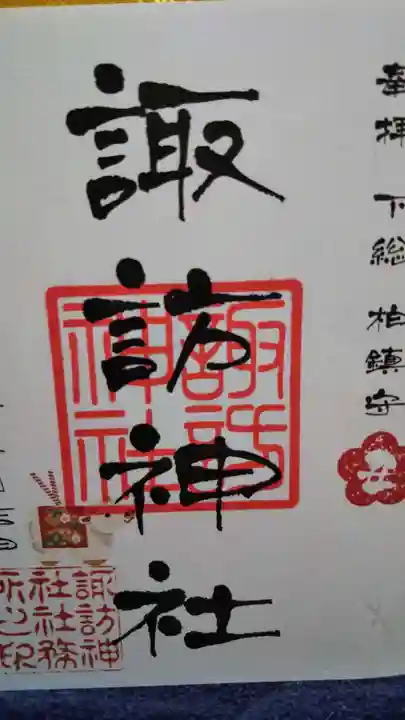 奉拝 下総 柏鎮守
諏訪神社
諏訪
神社
諏訪神
社社務
所之印